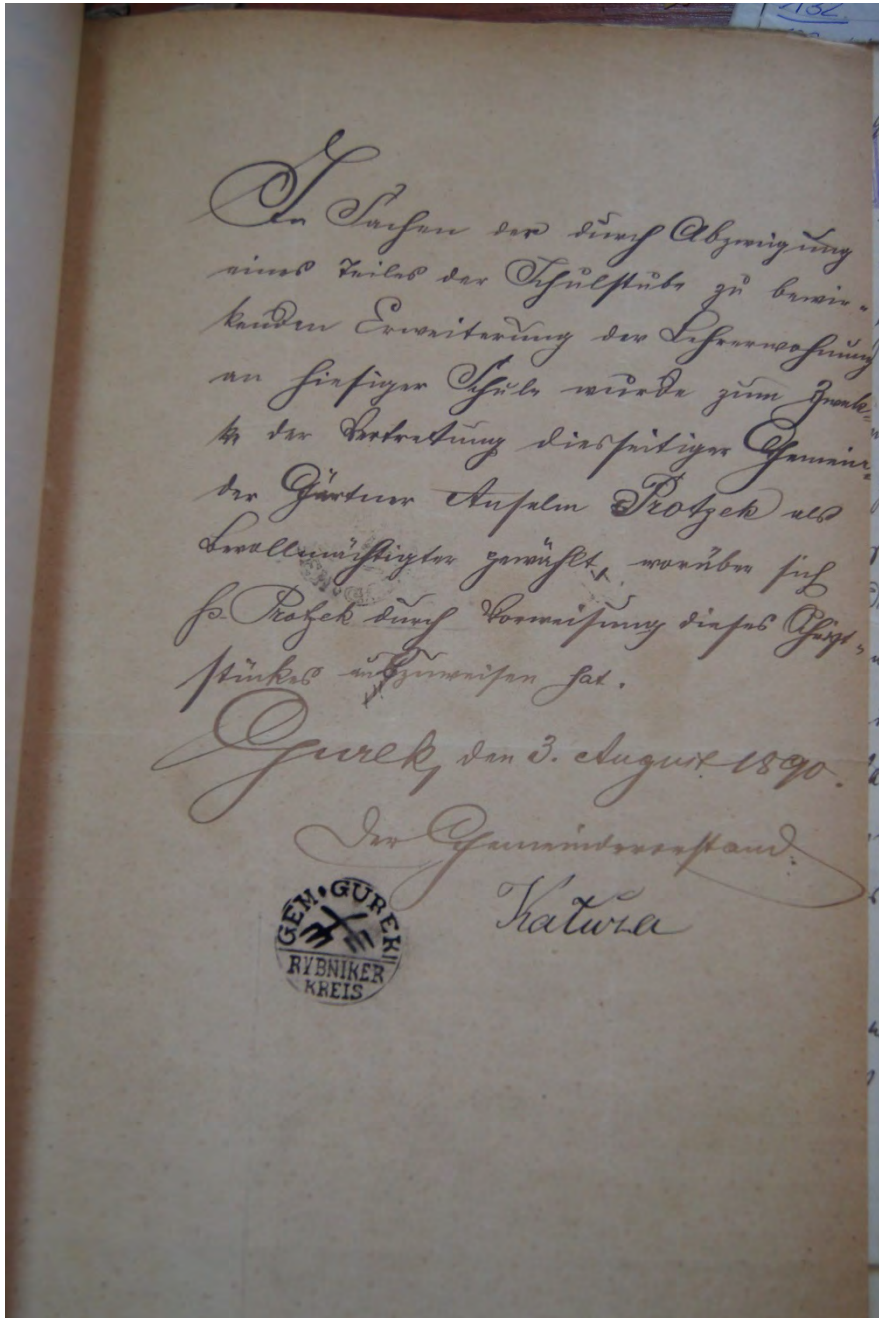 In Sachen der durch Abzweigung
eines Teiles der Schulstube zu bewir-
kenden Erweiterung der Lehrerwohnung
an hiesiger Schule wurde zum Zwek-
ke der Vertretung diesseitiger Gemein-
der Gärtner Anselm Protzek als
Bevollmächtigter gewählt, worüber sich
p. Protzek durch Vorweisung dieses Schrift-
stückes auszuweisen hat.
Gurek, den 3. August 1890.
Der Gemeindevorstand.
GEM. GUREK
RYBNIKER
KREIS